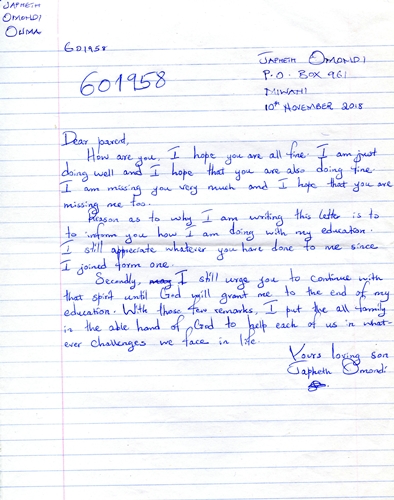 JAPHETH
OMONDI
OUMA
601958
601958
JAPHETH OMONDI
P.O. BOX 961
MIWANI
10th NOVEMBER 2015
Dear parent,
How are you, I hope you are all fine. I am just
doing well and I hope that you are also doing fine.
I am missing you very much and I hope that you are
missing me too.
Reason as to why I am writing this letter is to
to inform you how I am doing with my education.
I still appreciate whatever you have done to me since
I joined form one.
Secondly, I still urge you to continue with
that spirit until God will grant me to the end of my
education. With those few remarks, I put the all family
in the able hand of God to help each of us in what-
ever challenges we face in life.
Yours loving son
Japheth Omondi